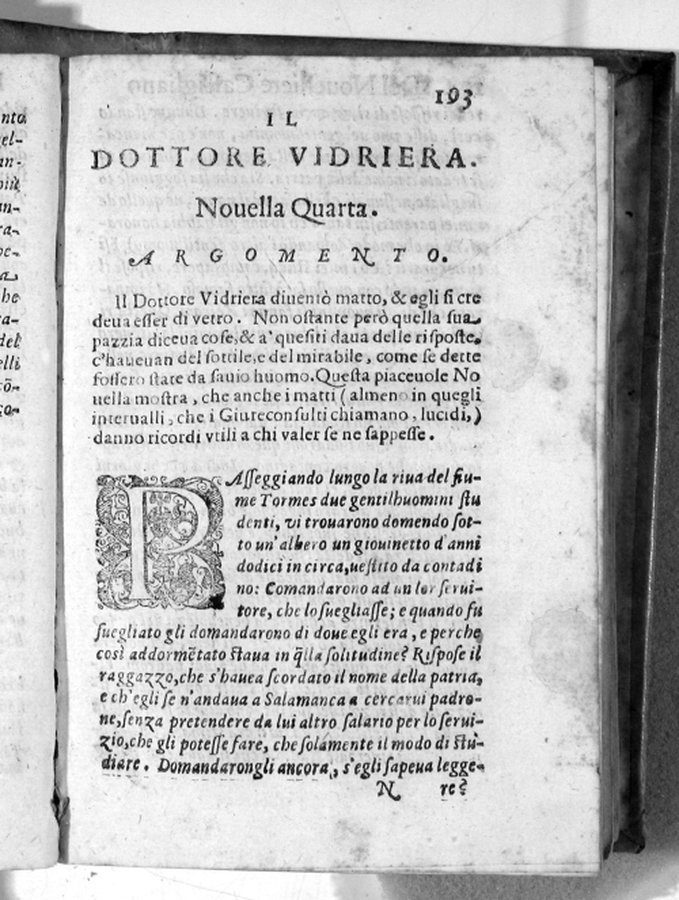 193
IL
DOTTORE VIDRIERA.
Nouella Quarta.
ARGOMENTO.
Il Dottore Vidriera diuentò matto, & egli si cre
deua esser di vetro. Non ostante però quella sua
pazzia diceua cose, & a' quesiti daua delle risposte,
c'haueuan del sottile, e del mirabile, come se dette
fossero state da sauio huomo. Questa piaceuole No
uella mostra, che anche i matti (almeno in quegli
interualli, che i Giureconsulti chiamano, lucidi,)
danno ricordi vtili a chi valer se ne sappesse.
PAsseggiando lungo la riua del fiu-
me Tormes due gentilhuomini stu
denti, vi trouarono domendo sot-
to un'albero un giouinetto d'anni
dodici in circa, uestito da contadi
no: Comandarono ad un lor serui-
tore, che lo suegliasse; e quando fu
suegliato gli domandarono di doue egli era, e perche
così addormẽtato staua in q̃lla solitudine? Rispose il
ragazzo, che s'hauea scordato il nome della patria,
e ch'egli se n'andaua a Salamanca a cercarui padro-
ne, senza pretendere da lui altro salario per lo serui-
zio, che gli potesse fare, che solamente il modo di stu-
diare. Domandarongli ancora, s'egli sapeua legge-
N re?